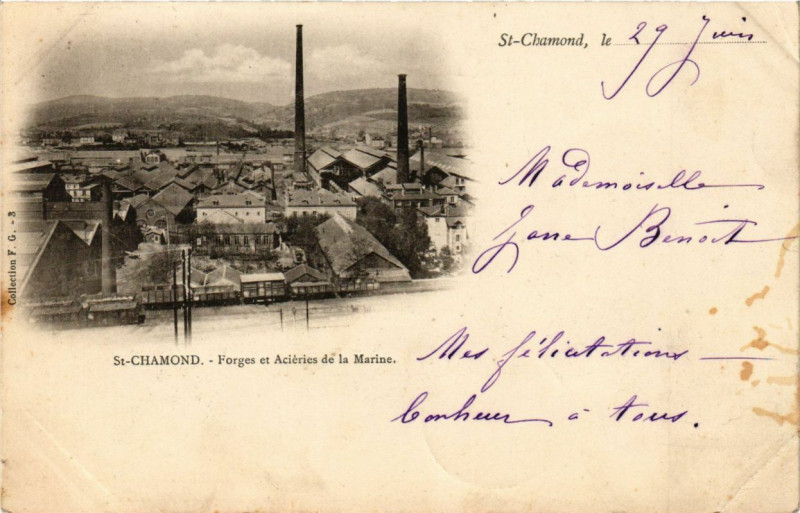 St-Chamond, le 29 Juin
Mademoiselle
Jane Benoît
Mes félicitations —
bonheur à tous.
St-CHAMOND. - Forges et Aciéries de la Marine.
Collection F. G. - 3